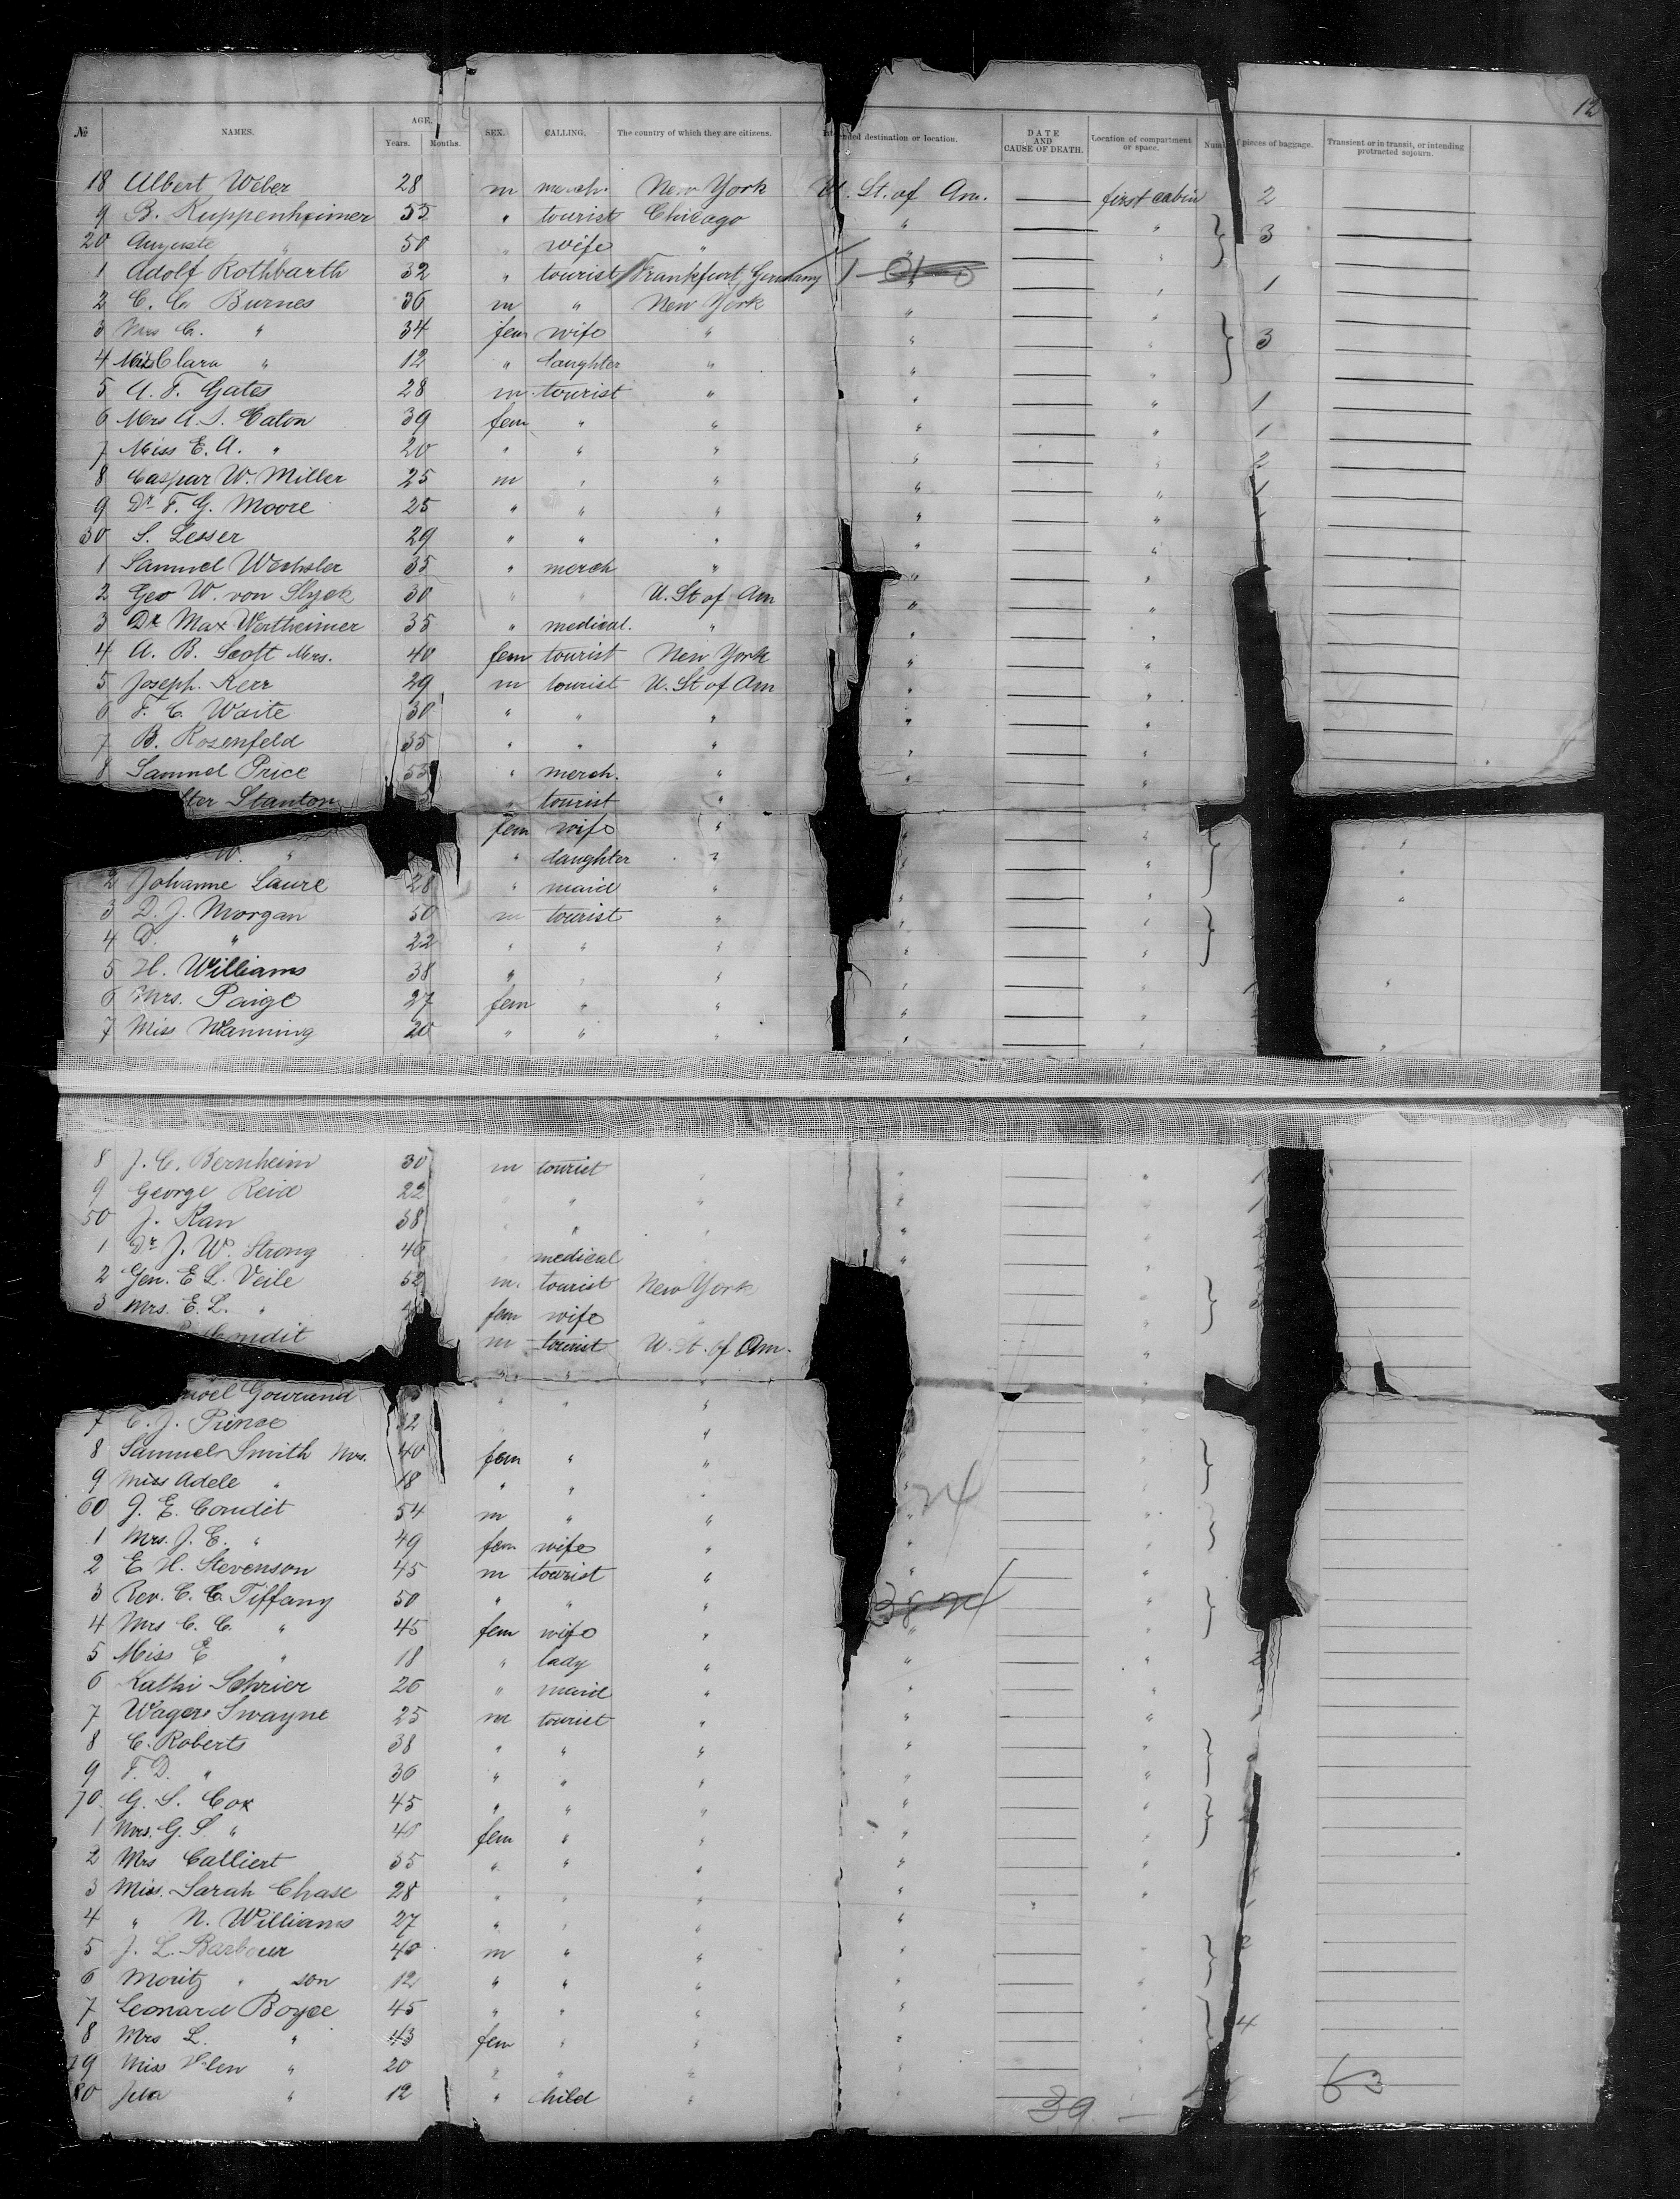 12
№ NAMES. AGE. Years. Months. SEX. CALLING. The country of which they are citizens. Intended destination or location. DATE AND CAUSE OF DEATH. Location of compartment or space. Number of pieces of baggage. Transient or in transit, or intending protracted sojourn.
18 Albert Weber 28 m merch. New York U. St. of Am. first cabin 2
9 B. Kuppenheimer 55 " tourist Chicago " " 3
20 Auguste " 50 " wife " " "
1 Adolf Rothbarth 32 " tourist Frankfurt, Germany " 1
2 C. C. Burnes 36 m " New York " "
3 Mrs C. " 34 fem wife " " " 3
4 Miss Clara " 12 " daughter " " "
5 A. F. Gates 28 m tourist " " " 1
6 Mrs A. S. Eaton 39 fem " " " " 1
7 Miss E. A. " 20 " " " " " 2
8 Caspar W. Miller 25 m " " " " 1
9 Dr F. G. Moore 25 " " " " "
30 S. Lesser 29 " " " " "
1 Samuel Wechsler 35 " merch " " "
2 Geo W. von Slyck 30 " " U. St of Am " "
3 Dr Max Wertheimer 35 " medical. " " "
4 A. B. Scott Mrs. 40 fem tourist New York " "
5 Joseph. Kerr 29 m tourist U. St of Am " "
6 F. C. Waite 30 " " " " "
7 B. Rosenfeld 35 " " " " "
8 Samuel Price 55 " merch. " " "
lter Stanton " tourist "
fem wife " " "
W. " " daughter " " "
2 Johanne Laure 28 " maid " " "
3 D. J. Morgan 50 m tourist " " "
4 D. " 22 " " " " "
5 H. Williams 38 " " " " "
6 Mrs. Paige 27 fem " " " "
7 Miss Manning 20 " " " " "
8 J. C. Bernheim 30 m tourist " " " 1
9 George Reid 22 " " " " " 1
50 J. Kan 38 " " " " " 2
1 Dr J. W. Strong 46 " medical " "
2 Gen. E L. Veile 52 m. tourist New York "
3 Mrs. E. L. " fem wife " "
Condit m tourist U. St. of Am. "
" "
uel Gourand " " "
7 C. J. Prince 32 "
8 Samuel Smith Mrs. 40 fem " " "
9 Miss Adele " 18 " " " "
60 J. E. Condit 54 m " " " "
1 Mrs. J. E. " 49 fem wife " " "
2 E H. Stevenson 45 m tourist " "
3 Rev. C. C. Tiffany 50 " " " "
4 Mrs C. C. " 45 fem wife " " "
5 Miss E " 18 " lady " " " 2
6 Kathi Schrier 26 " maid " " "
7 Wager Swayne 25 m tourist " " "
8 C. Roberts 38 " " " " "
9 F. D. " 36 " " " " "
70 G. S. Cox 45 " " " " "
1 Mrs. G. S. " 40 fem " " " "
2 Mrs Calliert 35 " " " " "
3 Miss. Sarah Chase 28 " " " " "
4 " N. Williams 27 " " " "
5 J. L. Barbour 40 m " " " " 2
6 Moritz " son 12 " " " " "
7 Leonard Boyce 45 " " " " " 4
8 Mrs L. " 43 fem " " " "
79 Miss Helen " 20 " " " " "
80 " 12 " child " " "
39 63